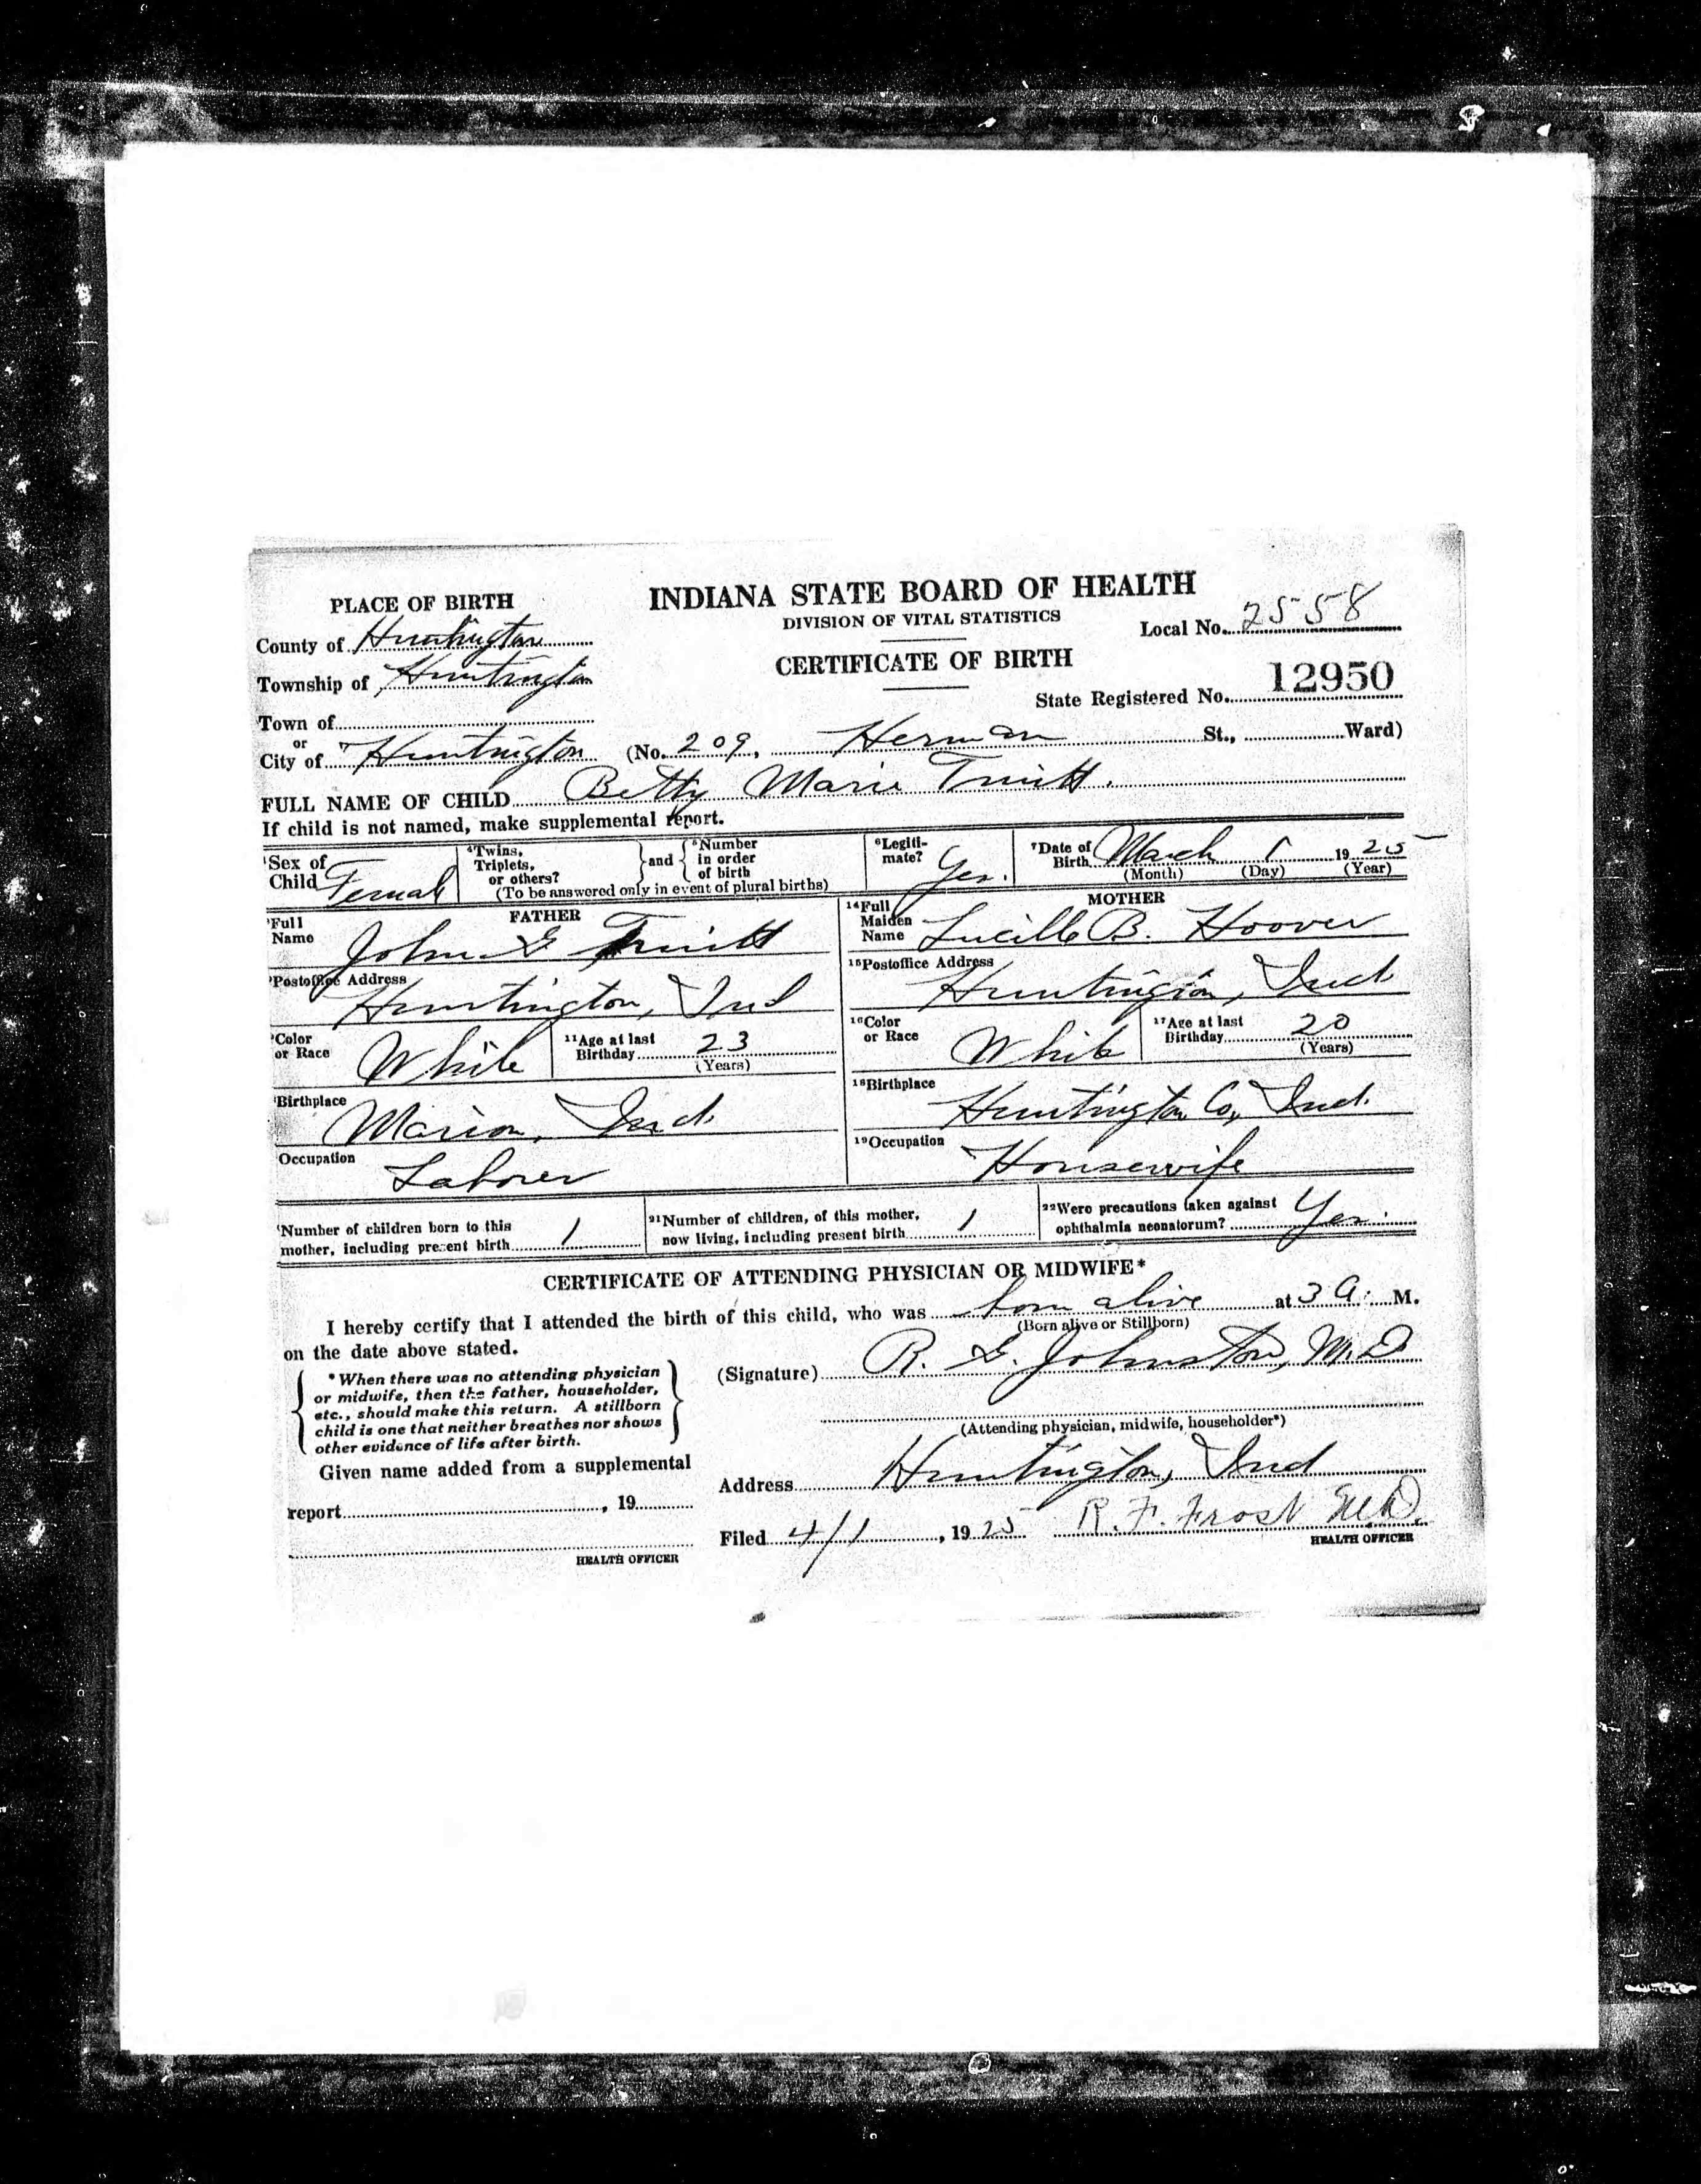 PLACE OF BIRTH
INDIANA STATE BOARD OF HEALTH
DIVISION OF VITAL STATISTICS
County of Huntington
Local No. 2558
Township of Huntington
CERTIFICATE OF BIRTH
State Registered No. 12950
Town of
or
City of " Huntington (No. 209, Herman St., Ward)
FULL NAME OF CHILD Betty Marie Truitt.
If child is not named, make supplemental report.
1Sex of Child Female
4Twins, Triplets, or others? and 5Number in order of birth
(To be answered only in event of plural births)
6Legiti-mate? Yes.
7Date of Birth March 1 1925
(Month) (Day) (Year)
FATHER
Full Name John Truitt
Postoffice Address
Huntington, Ind
Color or Race White
11Age at last Birthday 23
(Years)
Birthplace
Marion, Ind.
Occupation
Laborer
MOTHER
14Full Maiden Name Lucille B. Hoover
15Postoffice Address
Huntington, Ind
16Color or Race White
17Age at last Birthday 20
(Years)
18Birthplace
Huntington Co, Ind.
19Occupation
Housewife
Number of children born to this mother, including present birth 1
21Number of children, of this mother, now living, including present birth 1
22Were precautions taken against ophthalmia neonatorum? Yes.
CERTIFICATE OF ATTENDING PHYSICIAN OR MIDWIFE*
I hereby certify that I attended the birth of this child, who was born alive at 3 A. M.
(Born alive or Stillborn)
on the date above stated.
* When there was no attending physician
or midwife, then the father, householder,
etc., should make this return. A stillborn
child is one that neither breathes nor shows
other evidence of life after birth.
(Signature) R. G. Johnston, M.D
(Attending physician, midwife, householder*)
Given name added from a supplemental
report , 19
HEALTH OFFICER
Address Huntington, Ind
Filed 4/1, 1925 R. F. Frost M.D.
HEALTH OFFICER